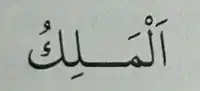 اَلْمَـلِكُ